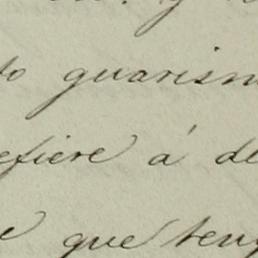 to guarism
efiere á de
e que teng